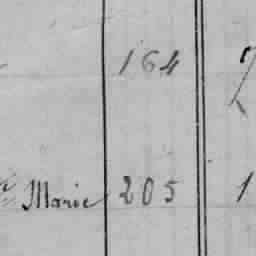 164
Marie 205 1